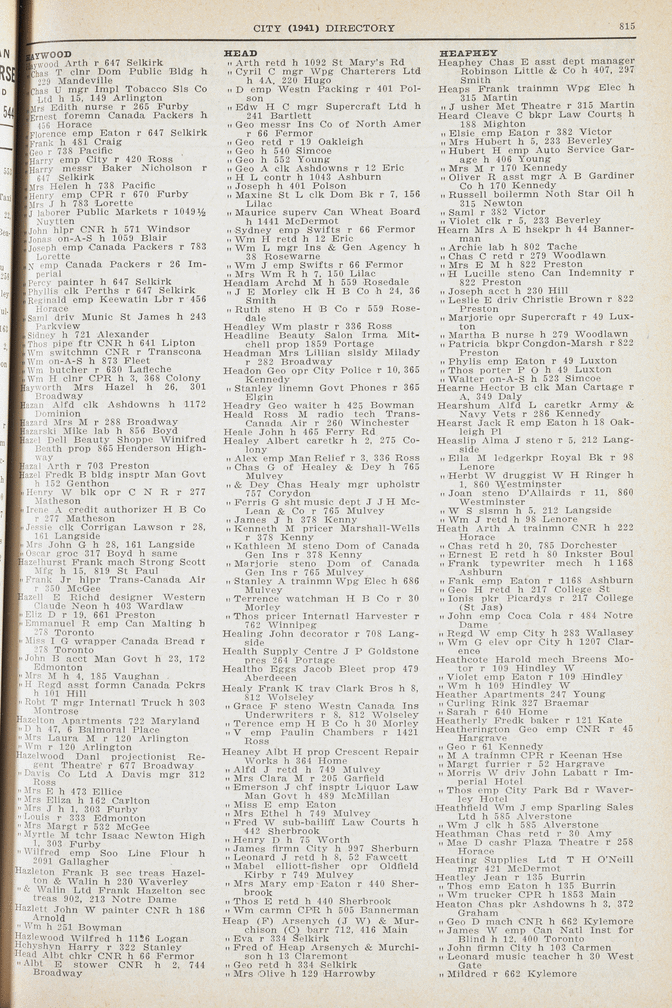 CITY (1941) DIRECTORY
815
HAYWOOD
Haywood Arth r 647 Selkirk
„ Chas T clnr Dom Public Bldg h
229 Mandeville
„ Chas U mgr Impl Tobacco Sls Co
Ltd h 15, 149 Arlington
„ Mrs Edith nurse r 265 Furby
„ Ernest foremn Canada Packers h
456 Horace
„ Florence emp Eaton r 647 Selkirk
„ Frank h 481 Craig
„ Geo r 738 Pacific
„ Harry emp City r 420 Ross
„ Harry messr Baker Nicholson r
647 Selkirk
„ Mrs Helen h 738 Pacific
„ Henry emp CPR r 670 Furby
„ Mrs J h 783 Lorette
„ J laborer Public Markets r 1049½
Nuytten
„ John hlpr CNR h 571 Windsor
„ Jonas on-A-S h 1059 Blair
„ Joseph emp Canada Packers r 783
Lorette
„ N emp Canada Packers r 26 Im-
perial
„ Percy painter h 647 Selkirk
„ Phyllis clk Perths r 647 Selkirk
„ Reginald emp Keewatin Lbr r 456
Horace
„ Saml driv Munic St James h 243
Parkview
„ Sidney h 721 Alexander
„ Thos pipe ftr CNR h 641 Lipton
„ Wm switchmn CNR r Transcona
„ Wm on-A-S h 873 Fleet
„ Wm butcher r 630 Lafleche
„ Wm H clnr CPR h 3, 368 Colony
Hayworth Mrs Hazel h 26, 301
Broadway
Hazan Alfd clk Ashdowns h 1172
Dominion
Hazard Mrs M r 288 Broadway
Hazarski Mike lab h 856 Boyd
Hazel Dell Beauty Shoppe Winifred
Beath prop 865 Henderson High-
way
Hazal Arth r 703 Preston
Hazel Fredk B bldg insptr Man Govt
h 152 Genthon
„ Henry W blk opr C N R r 277
Matheson
„ Irene A credit authorizer H B Co
r 277 Matheson
„ Jessie clk Corrigan Lawson r 28,
161 Langside
„ Mrs John G h 28, 161 Langside
„ Oscar groc 317 Boyd h same
Hazelhurst Frank mach Strong Scott
Mfg h 15, 819 St Paul
„ Frank Jr hlpr Trans-Canada Air
r 250 McGee
Hazell E Richd designer Western
Claude Neon h 403 Wardlaw
„ Eliz D r 19, 661 Preston
„ Emmanuel R emp Can Malting h
278 Toronto
„ Miss I G wrapper Canada Bread r
278 Toronto
„ John B acct Man Govt h 23, 172
Edmonton
„ Mrs M h 4, 185 Vaughan
„ H Regd asst formn Canada Pckrs
h 101 Hill
„ Robt T mgr Internatl Truck h 303
Montrose
Hazelton Apartments 722 Maryland
„ D h 47, 6 Balmoral Place
„ Mrs Laura M r 120 Arlington
„ Wm r 120 Arlington
Hazelwood Danl projectionist Re-
gent Theatre r 677 Broadway
„ Davis Co Ltd A Davis mgr 312
Ross
„ Mrs E h 473 Ellice
„ Mrs Eliza h 162 Carlton
„ Mrs J h 1, 303 Furby
„ Louis r 333 Edmonton
„ Mrs Margt r 532 McGee
„ Myrtle M tchr Isaac Newton High
1, 303 Furby
„ Wilfred emp Soo Line Flour h
2091 Gallagher
Hazleton Frank B sec treas Hazel-
ton & Walin h 230 Waverley
„ & Walin Ltd Frank Hazelton sec
treas 902, 213 Notre Dame
Hazlett John W painter CNR h 186
Arnold
„ Wm h 251 Bowman
Hazlewood Wilfred h 1126 Logan
Hchyshyn Harry r 322 Stanley
Head Albt chkr CNR h 66 Fermor
„ Albt E stower CNR h 2, 744
Broadway
HEAD
„ Arth retd h 1092 St Mary's Rd
„ Cyril C mgr Wpg Charterers Ltd
h 4A, 220 Hugo
„ D emp Westn Packing r 401 Pol-
son
„ Edw H C mgr Supercraft Ltd h
241 Bartlett
„ Geo messr Ins Co of North Amer
r 66 Fermor
„ Geo retd r 19 Oakleigh
„ Geo h 540 Simcoe
„ Geo h 552 Young
„ Geo A clk Ashdowns r 12 Eric
„ H L contr h 1043 Ashburn
„ Joseph h 401 Polson
„ Maxine St L clk Dom Bk r 7, 156
Lilac
„ Maurice superv Can Wheat Board
h 1441 McDermot
„ Sydney emp Swifts r 66 Fermor
„ Wm H retd h 12 Eric
„ Wm L mgr Ins & Gen Agency h
38 Rosewarne
„ Wm J emp Swifts r 66 Fermor
„ Mrs Wm R h 7, 150 Lilac
Headlam Archd M h 559 Rosedale
„ J E Morley clk H B Co h 24, 36
Smith
„ Ruth steno H B Co r 559 Rose-
dale
Headley Wm plastr r 336 Ross
Headline Beauty Salon Irma Mit-
chell prop 1859 Portage
Headman Mrs Lillian slsldy Milady
r 282 Broadway
Headon Geo opr City Police r 10, 365
Kennedy
„ Stanley linemn Govt Phones r 365
Elgin
Headry Geo waiter h 425 Bowman
Heald Ross M radio tech Trans-
Canada Air r 260 Winchester
Heale John h 465 Perry Rd
Healey Albert caretkr h 2, 275 Co-
lony
„ Alex emp Man Relief r 3, 336 Ross
„ Chas G of Healey & Dey h 765
Mulvey
„ & Dey Chas Healy mgr upholstr
757 Corydon
„ Ferris G sht music dept J J H Mc-
Lean & Co r 765 Mulvey
„ James J h 378 Kenny
„ Kenneth M pricer Marshall-Wells
r 378 Kenny
„ Kathleen M steno Dom of Canada
Gen Ins r 378 Kenny
„ Marjorie steno Dom of Canada
Gen Ins r 765 Mulvey
„ Stanley A trainmn Wpg Elec h 686
Mulvey
„ Terrence watchman H B Co r 30
Morley
„ Thos pricer Internatl Harvester r
762 Winnipeg
Healing John decorator r 708 Lang-
side
Health Supply Centre J P Goldstone
pres 264 Portage
Healtho Eggs Jacob Bleet prop 479
Aberdeen
Healy Frank K trav Clark Bros h 8,
812 Wolseley
„ Grace F steno Westn Canada Ins
Underwriters r 8, 812 Wolseley
„ Terence emp H B Co h 30 Morley
„ V emp Paulin Chambers r 1421
Ross
Heaney Albt H prop Crescent Repair
Works h 364 Home
„ Alfd J retd h 749 Mulvey
„ Mrs Clara M r 205 Garfield
„ Emerson J chf insptr Liquor Law
Man Govt h 489 McMillan
„ Miss E emp Eaton
„ Mrs Ethel h 749 Mulvey
„ Fred W sub-bailiff Law Courts h
442 Sherbrook
„ Henry D h 75 Worth
„ James firmn City h 997 Sherburn
„ Leonard J retd h 8, 52 Fawcett
„ Mabel elliott-fisher opr Oldfield
Kirby r 749 Mulvey
„ Mrs Mary emp Eaton r 440 Sher-
brook
„ Thos E retd h 440 Sherbrook
„ Wm carmn CPR h 505 Bannerman
Heap (F) Arsenych (J W) & Mur-
chison (C) barr 712, 416 Main
„ Eva r 334 Selkirk
„ Fred of Heap Arsenych & Murchi-
son h 13 Claremont
„ Geo retd h 334 Selkirk
„ Mrs Olive h 129 Harrowby
HEAPHEY
Heaphey Chas E asst dept manager
Robinson Little & Co h 407, 297
Smith
Heaps Frank trainmn Wpg Elec h
315 Martin
„ J usher Met Theatre r 315 Martin
Heard Cleave C bkpr Law Courts h
188 Mighton
„ Elsie emp Eaton r 382 Victor
„ Mrs Hubert h 5, 233 Beverley
„ Hubert H emp Auto Service Gar-
age h 406 Young
„ Mrs M r 170 Kennedy
„ Oliver R asst mgr A B Gardiner
Co h 170 Kennedy
„ Russell boilermn Noth Star Oil h
315 Newton
„ Saml r 382 Victor
„ Violet clk r 5, 233 Beverley
Hearn Mrs A E hsekpr h 44 Banner-
man
„ Archie lab h 802 Tache
„ Chas C retd r 279 Woodlawn
„ Mrs E M h 822 Preston
„ H Lucille steno Can Indemnity r
822 Preston
„ Joseph acct h 230 Hill
„ Leslie E driv Christie Brown r 822
Preston
„ Marjorie opr Supercraft r 49 Lux-
ton
„ Martha B nurse h 279 Woodlawn
„ Patricia bkpr Congdon-Marsh r 822
Preston
„ Phylis emp Eaton r 49 Luxton
„ Thos porter P O h 49 Luxton
„ Walter on-A-S h 523 Simcoe
Hearne Hector B clk Man Cartage r
A, 349 Daly
Hearshum Alfd L caretkr Army &
Navy Vets r 286 Kennedy
Hearst Jack R emp Eaton h 18 Oak-
leigh Pl
Heaslip Alma J steno r 5, 212 Lang-
side
„ Ella M ledgerkpr Royal Bk r 98
Lenore
„ Herbt W druggist W H Ringer h
1, 860 Westminster
„ Joan steno D'Allairds r 11, 860
Westminster
„ W S slsmn h 5, 212 Langside
„ Wm J retd h 98 Lenore
Heath Arth A trainmn CNR h 222
Horace
„ Chas retd h 20, 785 Dorchester
„ Ernest E retd h 80 Inkster Boul
„ Frank typewriter mech h 1168
Ashburn
„ Fank emp Eaton r 1168 Ashburn
„ Geo H retd h 217 College St
„ Ionis pkr Picardys r 217 College
(St Jas)
„ John emp Coca Cola r 484 Notre
Dame
„ Regd W emp City h 283 Wallasey
„ Wm G elev opr City h 1207 Clar-
ence
Heathcote Harold mech Breens Mo-
tor r 109 Hindley W
„ Violet emp Eaton r 109 Hindley
„ Wm h 109 Hindley W
Heather Apartments 247 Young
„ Curling Rink 327 Braemar
„ Sarah r 640 Home
Heatherly Fredk baker r 121 Kate
Heatherington Geo emp CNR r 45
Hargrave
„ Geo r 61 Kennedy
„ M A trainmn CPR r Keenan Hse
„ Margt furrier r 52 Hargrave
„ Morris W driv John Labatt r Im-
perial Hotel
„ Thos emp City Park Bd r Waver-
ley Hotel
Heathfield Wm J emp Sparling Sales
Ltd h 585 Alverstone
„ Wm J clk h 585 Alverstone
Heathman Chas retd r 30 Amy
„ Mae D cashr Plaza Theatre r 258
Horace
Heating Supplies Ltd T H O'Neill
mgr 421 McDermot
Heatley Jean r 135 Burrin
„ Thos emp Eaton h 135 Burrin
„ Wm trucker CPR h 1853 Main
Heaton Chas pkr Ashdowns h 3, 372
Graham
„ Geo D mach CNR h 662 Kylemore
„ James W emp Can Natl Inst for
Blind h 12, 400 Toronto
„ John firmn City h 103 Carmen
„ Leonard music teacher h 30 West
Gate
„ Mildred r 662 Kylemore